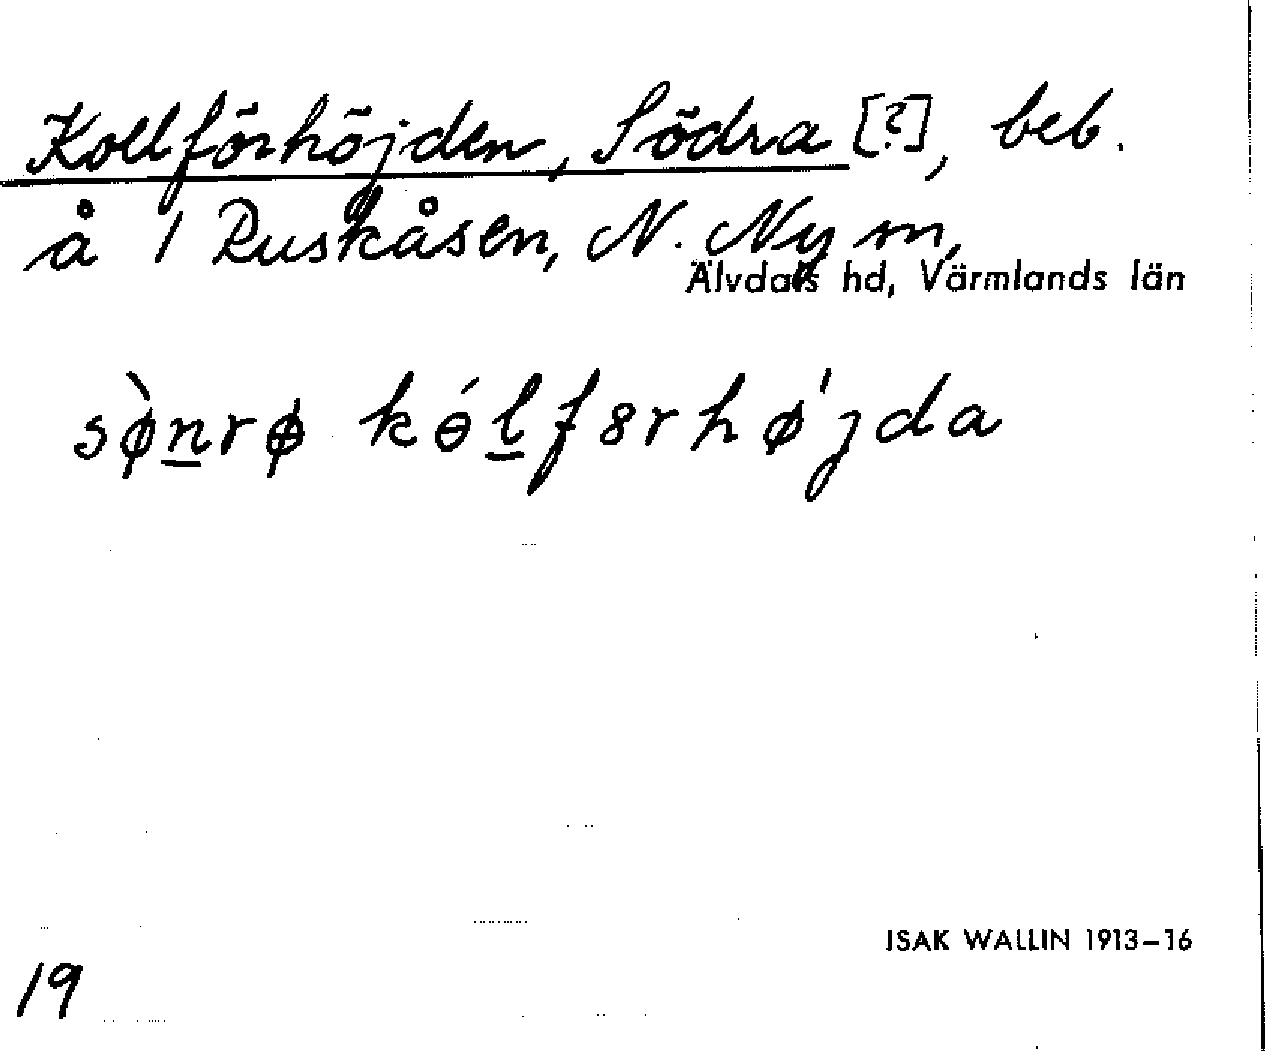 Kollförhöjden, Södra [?], beb.
å 1 Ruskåsen, N. Ny sn,
Älvdals hd, Värmlands län
sø̀n̲rø kɵ́l̲fɜrhø̍jda
ISAK WALLIN 1913–16
19